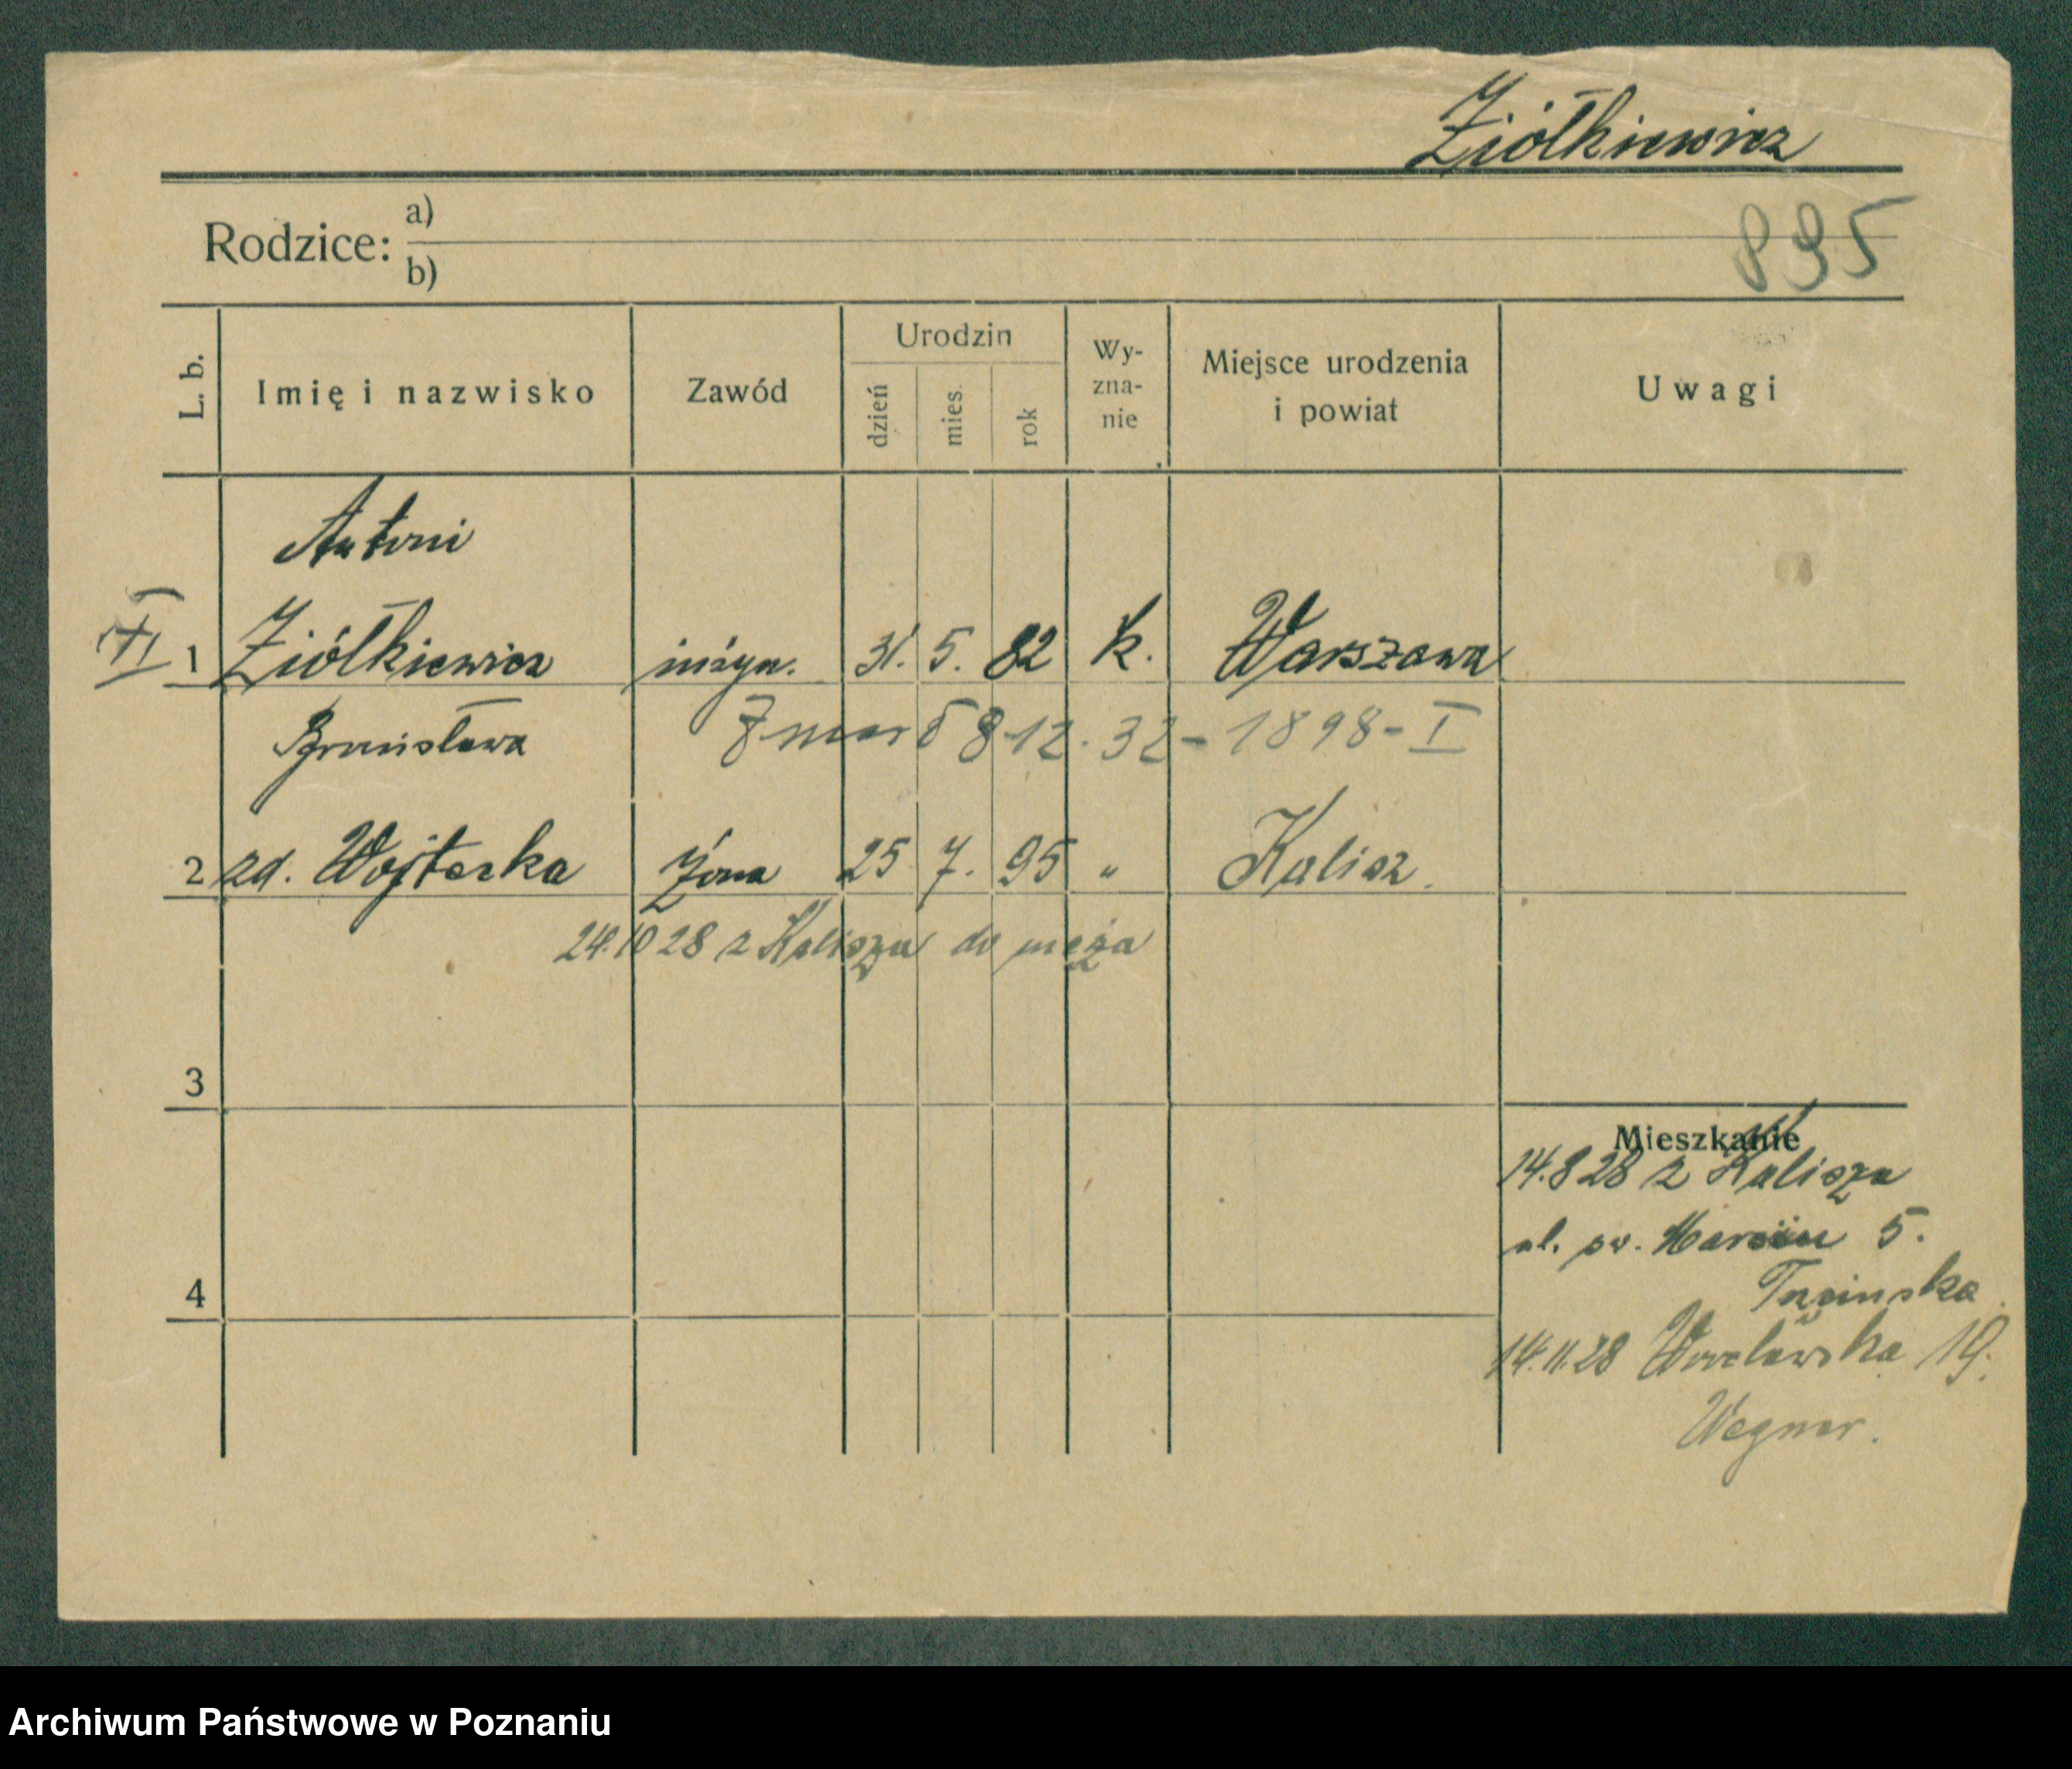 Ziółkiewicz
Rodzice: a)
b)
895
L. b.
Imię i nazwisko
Zawód
Urodzin
dzień
mies.
rok
Wy-
zna-
nie
Miejsce urodzenia
i powiat
Uwagi
Antoni
1 Ziółkiewicz inżyn. 31. 5. 82 k. Warszawa
Bronisława
Zmarł 8 12. 32 - 1898 - I
2 zd. Wojterka żona 25 7. 95 " Kalisz.
24.10 28 z Kalisza do męża
3
Mieszkanie
14.8 28 z Kalisza
ul. św. Marcin 5.
4
14.11.28 Wrocławska 19.
Wegner.
Archiwum Państwowe w Poznaniu